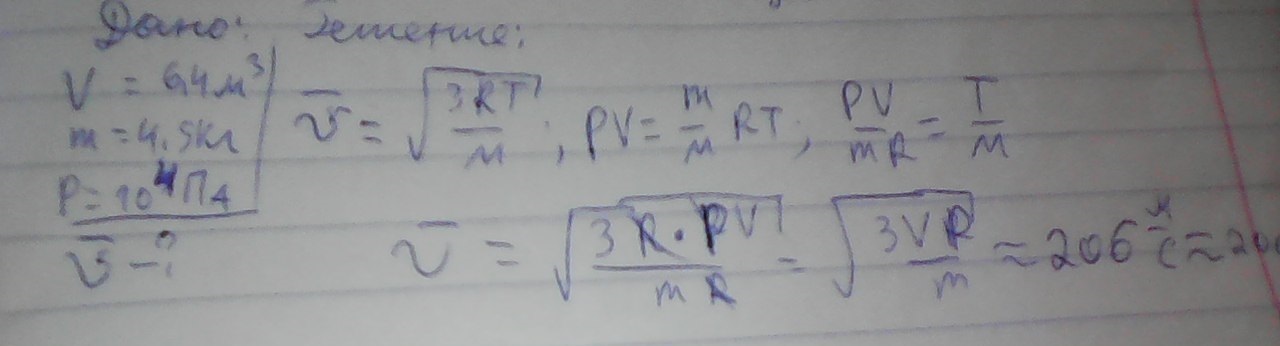 Дано: Решение:
V = 6,4 м³
m = 4,5 кг
P = 10⁴ Па
v̄ - ?
v̄ = √(3RT/M) ; PV = m/M RT ; PV/mR = T/M
v̄ = √(3R·PV/mR) = √(3VP/m) ≈ 206 м/с ≈